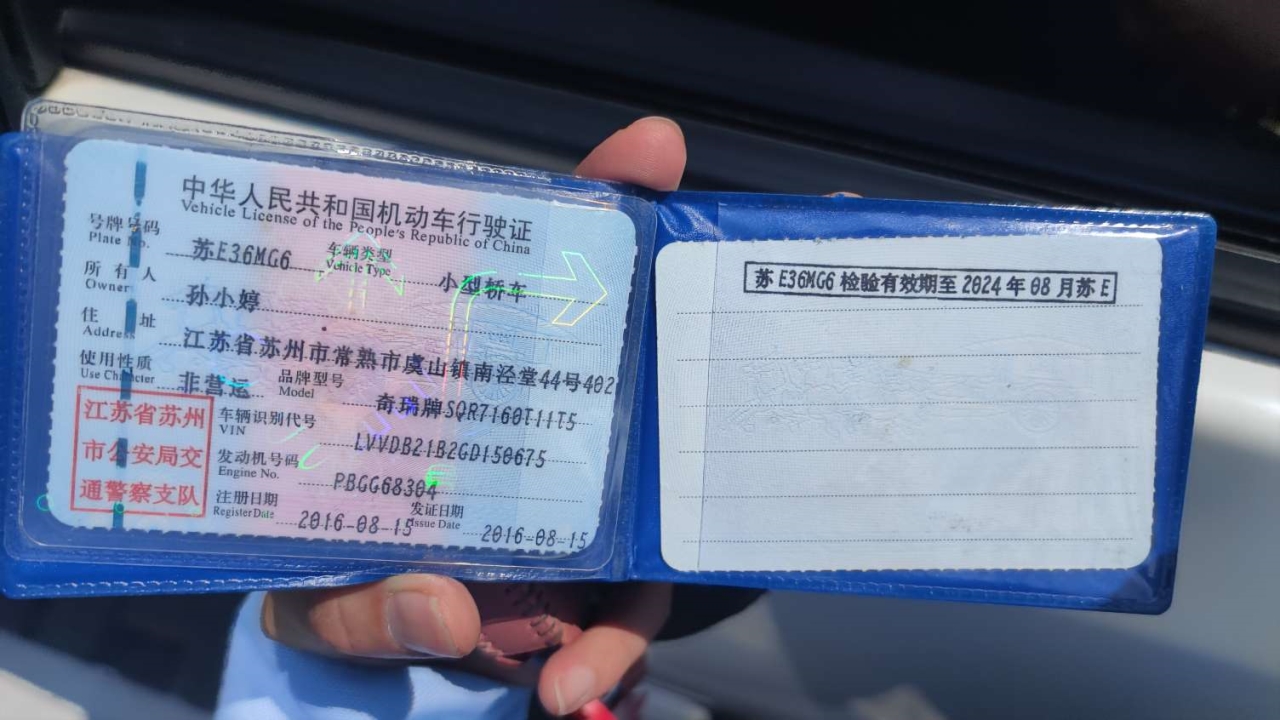 中华人民共和国机动车行驶证
Vehicle License of the People's Republic of China
号牌号码 苏E36MG6 车辆类型 小型轿车
Plate No. Vehicle Type
所有人 孙小婷
Owner
住址 江苏省苏州市常熟市虞山镇南泾堂44号402
Address
使用性质 非营运 品牌型号 奇瑞牌SQR7160T11T5
Use Character Model
江苏省苏州
市公安局交
通警察支队
车辆识别代号 LVVDB21B2GD150675
VIN
发动机号码 PBGG68304
Engine No.
注册日期 2016-08-15 发证日期 2016-08-15
Register Date Issue Date
苏E36MG6检验有效期至2024年08月苏E